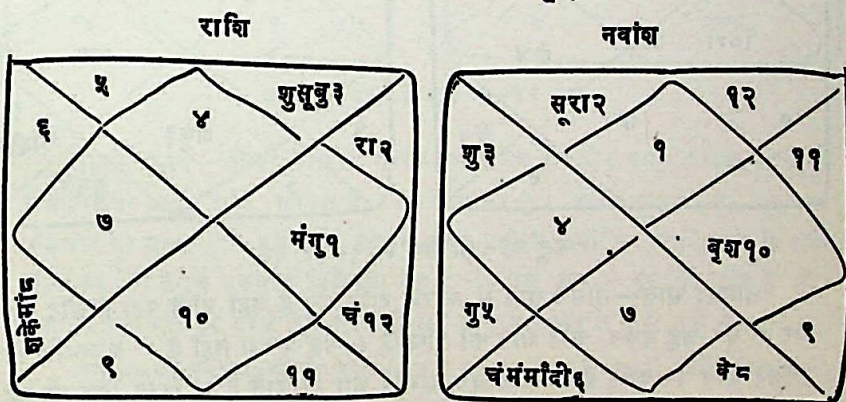 राशि
५
शुसूबु३
६
४
रा२
७
मंगु१
१०
चं१२
९
११
नवांश
सूरा२
१२
शु३
१
११
४
बुश१०
गु५
७
९
चंमंमांदी६
के८